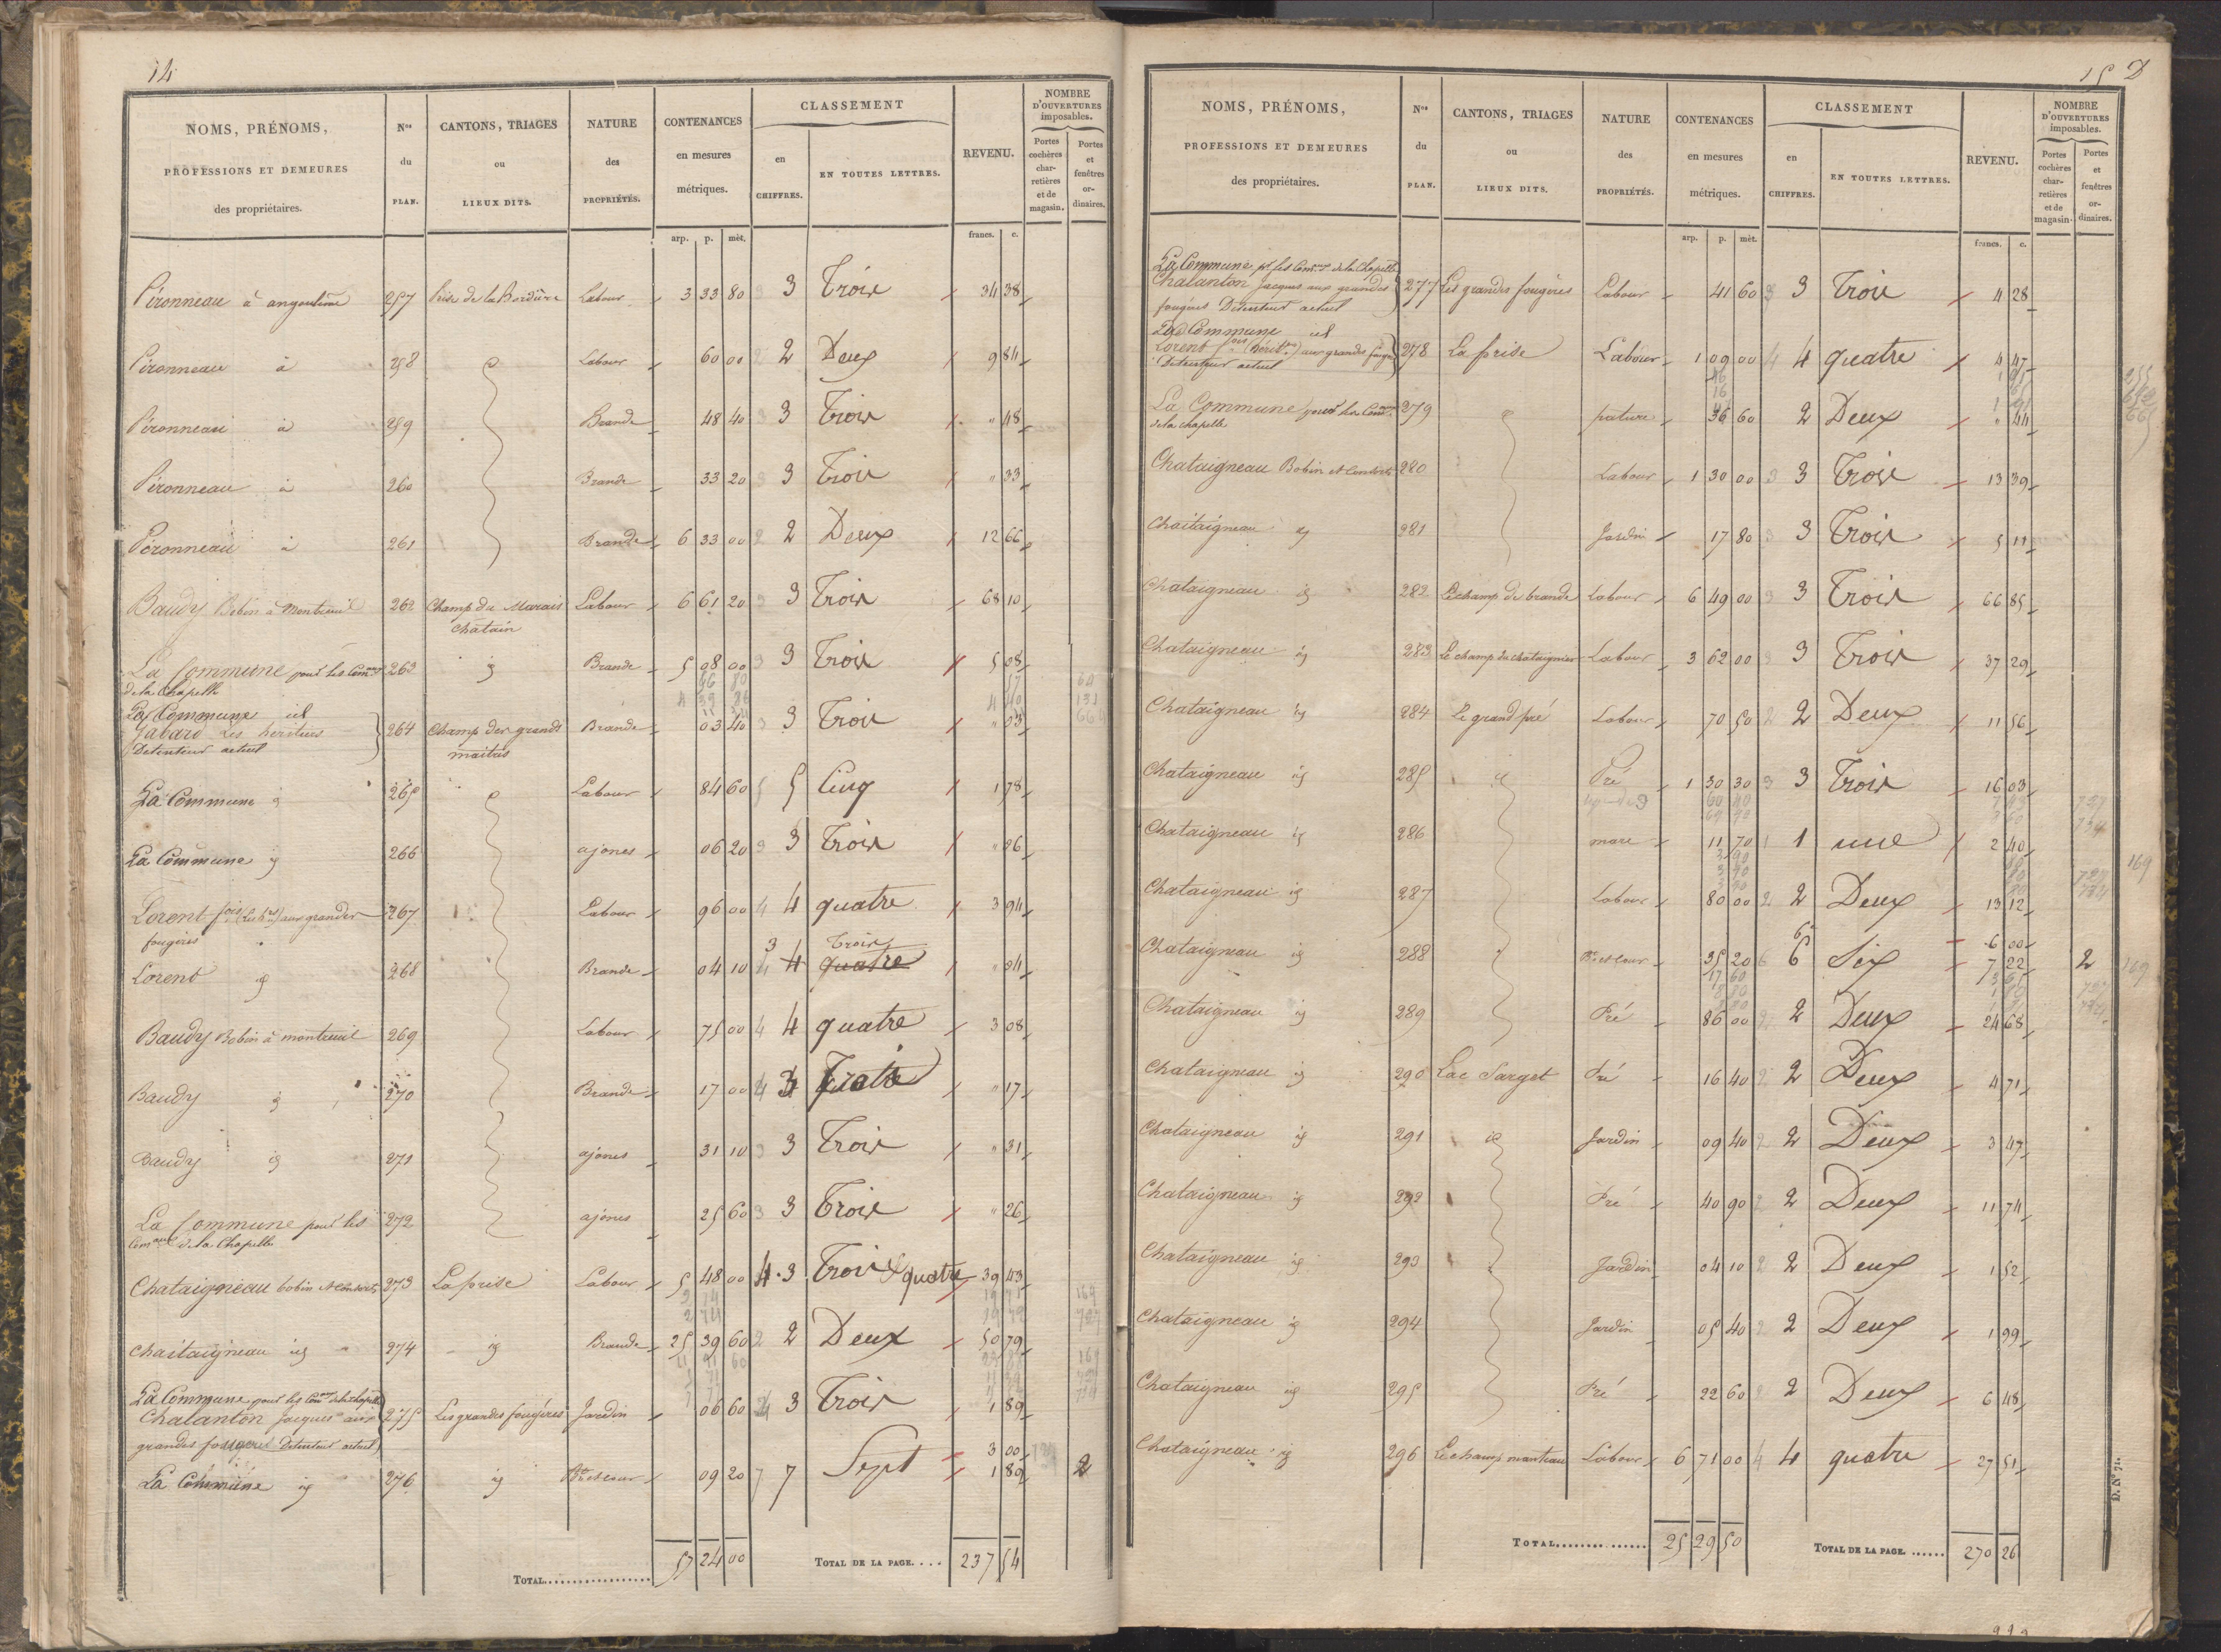 14
NOMS, PRÉNOMS, PROFESSIONS ET DEMEURES des propriétaires. | Nos du PLAN. | CANTONS, TRIAGES ou LIEUX DITS. | NATURE des PROPRIÉTÉS. | CONTENANCES en mesures métriques. | CLASSEMENT en CHIFFRES. | EN TOUTES LETTRES. | REVENU. | NOMBRE D'OUVERTURES imposables. Portes cochères charretières et de magasin. | Portes et fenêtres ordinaires.
arp. p. mèt. francs. c.
Péronneau à angoulême 257 Prise de la Bordure Labour 3 33 80 3 3 Trois 34 38
Péronneau à 258 Labour 60 00 2 2 Deux 9 84
Péronneau à 259 Brande 48 40 3 3 Trois " 48
Péronneau à 260 Brande 33 20 3 3 Trois " 33
Péronneau à 261 Brande 6 33 00 2 2 Deux 12 66
Baudy Bobin à Montreuil 262 Champ du Marais Labour 6 61 20 3 3 Trois 68 10
Chatain
La Commune pour les Comaux 263 ig Brande 5 08 00 3 3 Trois 5 08
de la Chapelle
La Commune id
Gabard Les héritiers 264 Champ des grands Brande 03 40 3 3 Trois " 03
Detenteur actuel maitres
La Commune ig 265 Labour 84 60 5 5 Cinq 1 78
La Commune ig 266 ajoncs 06 20 3 3 Trois " 06
Lorent fois (Les hers) aux grandes 267 Labour 96 00 4 4 quatre 3 94
fougères 3 Trois
Lorent ig 268 Brande 04 10 4 4 quatre " 04
Baudy Bobin à montreuil 269 Labour 75 00 4 4 quatre 3 08
Baudy ig 270 Brande 17 00 4 3 Trois " 17
Baudy ig 271 ajoncs 31 10 3 3 Trois " 31
La Commune pour les 272 ajoncs 25 60 3 3 Trois " 26
Comaux de la Chapelle
Chataigneau bobin et Consorts 273 La prise Labour 5 48 00 4.3 Trois & quatre 39 43
Chastaigneau ig 274 ig Brande 25 39 60 2 2 Deux 50 79
La Commune pour les Comaux de la chapelle
Chalanton Jacques aux 275 Les grandes fougères Jardin 06 60 3 Trois 1 89
grandes fougeres Detenteur actuel 3 00
La Commune ig 276 ig Bt et cour 09 20 7 7 Sept 1 89 2
TOTAL 57 24 00 TOTAL DE LA PAGE 237 54
15 D
NOMS, PRÉNOMS, PROFESSIONS ET DEMEURES des propriétaires. | Nos du PLAN. | CANTONS, TRIAGES ou LIEUX DITS. | NATURE des PROPRIÉTÉS. | CONTENANCES en mesures métriques. | CLASSEMENT en CHIFFRES. | EN TOUTES LETTRES. | REVENU. | NOMBRE D'OUVERTURES imposables. Portes cochères charretières et de magasin. | Portes et fenêtres ordinaires.
arp. p. mèt. francs. c.
La Commune pr les Comaux de la Chapelle
Chalanton Jacques aux grandes 277 Les grandes fougères Labour 41 60 3 3 Trois 4 28
fougères Detenteur actuel
La Commune id
Lorent fois (héritrs) aux grandes foug 278 La prise Labour 1 09 00 4 4 quatre 4 47
Detenteur actuel
La Commune pour les Comaux 279 pature 36 60 2 Deux " 44
de la chapelle
Chataigneau Bobin et Consorts 280 Labour 1 30 00 3 3 Trois 13 39
Chaitaigneau ig 281 Jardin 17 80 3 3 Trois 5 11
Chataigneau ig 282 Le champ de brande Labour 6 49 00 3 3 Trois 66 85
Chataigneau ig 283 Le champ du chataignier Labour 3 62 00 3 3 Trois 37 29
Chataigneau ig 284 Le grand pré Labour 70 50 2 2 Deux 11 56
Chataigneau ig 285 id Pré 1 30 30 3 3 Trois 16 03
Chataigneau ig 286 mare 11 70 1 1 une 2 40
Chataigneau ig 287 Labour 80 00 2 2 Deux 13 12
6 6 00
Chataigneau ig 288 Bt et cour 35 20 6 6 Six 7 22 2
Chataigneau ig 289 Pré 86 00 2 2 Deux 24 68
Chataigneau ig 290 Lac Sarget Pré 16 40 2 2 Deux 4 71
Chataigneau ig 291 ig Jardin 09 40 2 2 Deux 3 47
Chataigneau ig 292 Pré 40 90 2 2 Deux 11 74
Chataigneau ig 293 Jardin 04 10 2 2 Deux 1 52
Chataigneau ig 294 Jardin 05 40 2 2 Deux 1 99
Chataigneau ig 295 Pré 22 60 2 2 Deux 6 48
Chataigneau ig 296 Le champ manteau Labour 6 71 00 4 4 quatre 27 51
TOTAL 25 29 50 TOTAL DE LA PAGE 270 26
D. N° 71.